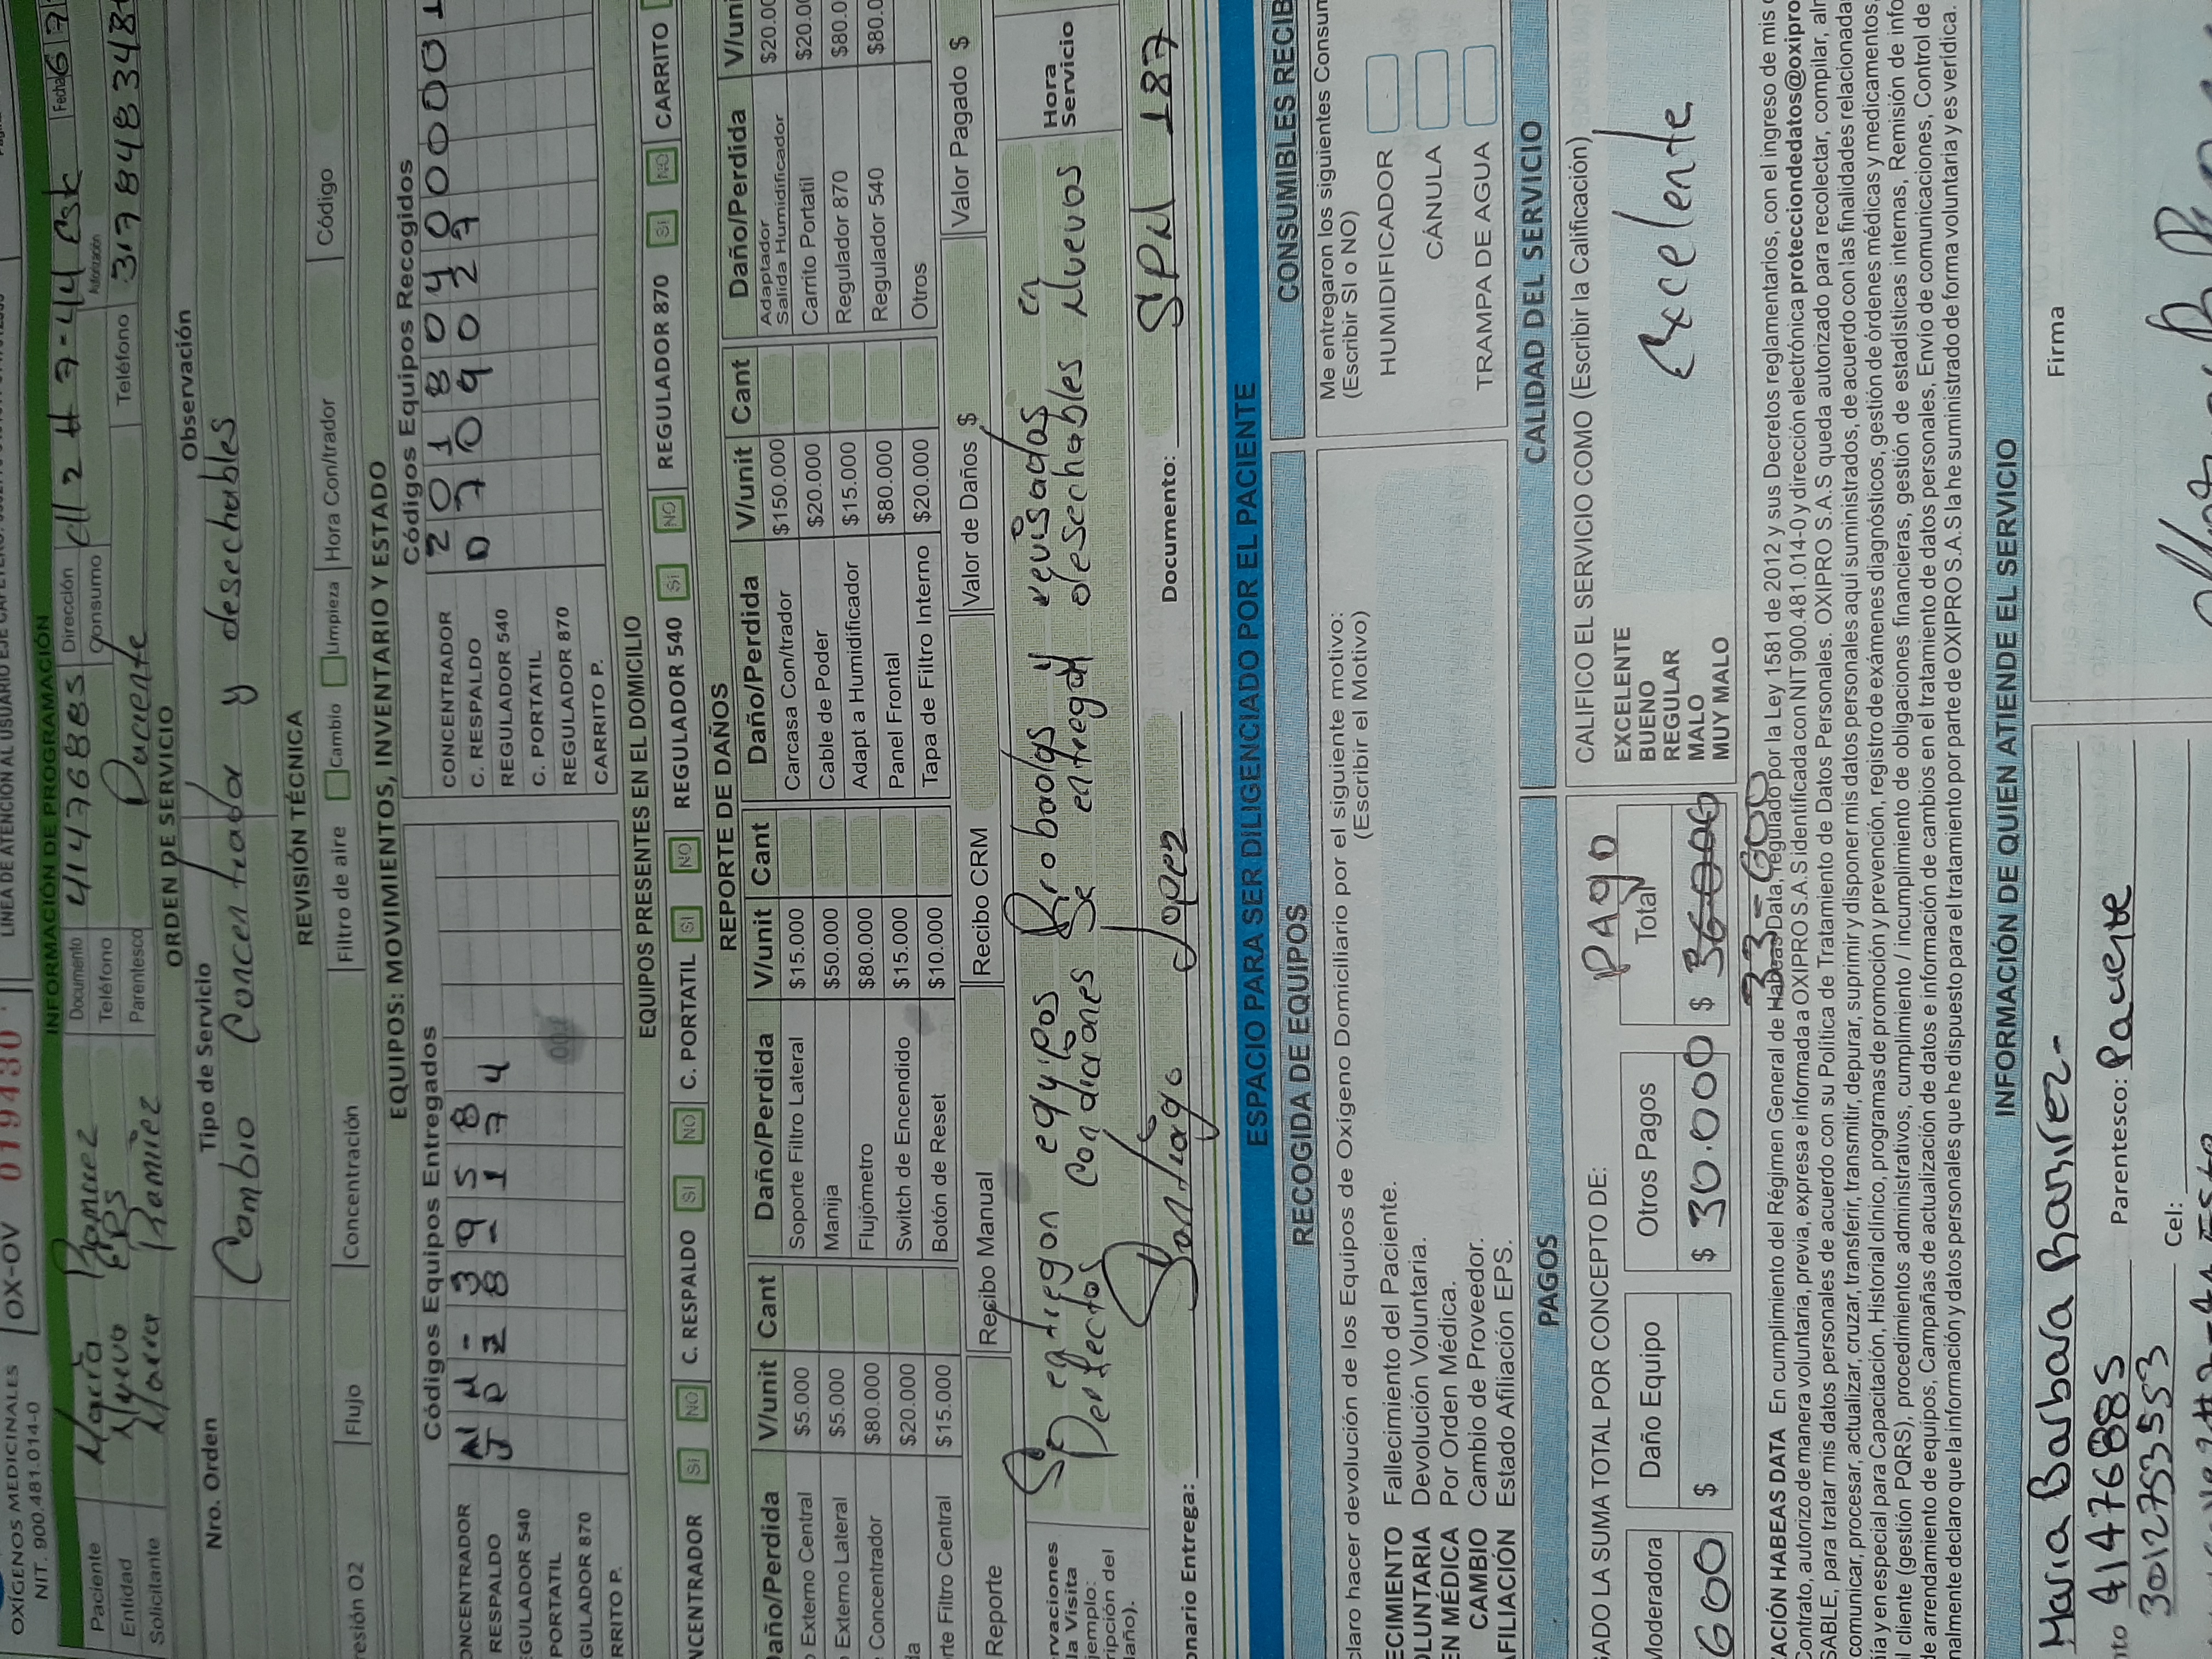 OXÍGENOS MEDICINALES
NIT. 900.481.014-0
OX-OV 019430
LÍNEA DE ATENCIÓN AL USUARIO EJE CAFETERO:
INFORMACIÓN DE PROGRAMACIÓN
Paciente Maria Ramirez Documento 41476885 Dirección Cll 2 # 7-44 Est Fecha 6 7
Entidad Nueva EPS Teléfono Consumo Autorización
Solicitante Maria Ramirez Parentesco Paciente Teléfono 317848348
ORDEN DE SERVICIO
Nro. Orden Tipo de Servicio Observación
Cambio Concentrador y desechables
REVISIÓN TÉCNICA
resión O2 Flujo Concentración Filtro de aire Cambio Limpieza Hora Con/trador Código
EQUIPOS: MOVIMIENTOS, INVENTARIO Y ESTADO
Códigos Equipos Entregados Códigos Equipos Recogidos
ONCENTRADOR NN-3958 CONCENTRADOR 2018040000031
RESPALDO JD28-174 C. RESPALDO D7109027
GULADOR 540 REGULADOR 540
PORTATIL C. PORTATIL
GULADOR 870 REGULADOR 870
RRITO P. CARRITO P.
EQUIPOS PRESENTES EN EL DOMICILIO
NCENTRADOR SI NO C. RESPALDO SI NO C. PORTATIL SI NO REGULADOR 540 SI NO REGULADOR 870 SI NO CARRITO
REPORTE DE DAÑOS
Daño/Perdida V/unit Cant Daño/Perdida V/unit Cant Daño/Perdida V/unit Cant Daño/Perdida V/uni
Externo Central $5.000 Soporte Filtro Lateral $15.000 Carcasa Con/trador $150.000 Adaptador Salida Humidificador $20.00
Externo Lateral $5.000 Manija $50.000 Cable de Poder $20.000 Carrito Portatil $20.00
Concentrador $80.000 Flujómetro $80.000 Adapt a Humidificador $15.000 Regulador 870 $80.0
da $20.000 Switch de Encendido $15.000 Panel Frontal $80.000 Regulador 540 $80.0
rte Filtro Central $15.000 Botón de Reset $10.000 Tapa de Filtro Interno $20.000 Otros
Reporte Recibo Manual Recibo CRM Valor de Daños $ Valor Pagado $
rvaciones la Visita jemplo: ripción del daño).
Se entregan equipos Probados y revisados en
Perfectos condiciones Se entregan desechables Nuevos
Hora Servicio
onario Entrega: Santiago Lopez Documento: SPN 187
ESPACIO PARA SER DILIGENCIADO POR EL PACIENTE
RECOGIDA DE EQUIPOS
claro hacer devolución de los Equipos de Oxígeno Domiciliario por el siguiente motivo:
(Escribir el Motivo)
ECIMIENTO Fallecimiento del Paciente.
OLUNTARIA Devolución Voluntaria.
EN MÉDICA Por Orden Médica.
CAMBIO Cambio de Proveedor.
AFILIACIÓN Estado Afiliación EPS.
CONSUMIBLES RECIB
Me entregaron los siguientes Consum
(Escribir SI o NO)
HUMIDIFICADOR
CÁNULA
TRAMPA DE AGUA
PAGOS
GADO LA SUMA TOTAL POR CONCEPTO DE: PAGO
Moderadora Daño Equipo Otros Pagos Total
600 $ $ 30.000 $
33-600
CALIDAD DEL SERVICIO
CALIFICO EL SERVICIO COMO (Escribir la Calificación)
EXCELENTE
BUENO
REGULAR
MALO
MUY MALO
Excelente
ACIÓN HABEAS DATA En cumplimiento del Régimen General de Habeas Data, regulado por la Ley 1581 de 2012 y sus Decretos reglamentarios, con el ingreso de mis
Contrato, autorizo de manera voluntaria, previa, expresa e informada a OXIPRO S.A.S identificada con NIT 900.481.014-0 y dirección electrónica protecciondedatos@oxipro
SABLE, para tratar mis datos personales de acuerdo con su Política de Tratamiento de Datos Personales. OXIPRO S.A.S queda autorizado para recolectar, compilar, alm
comunicar, procesar, actualizar, cruzar, transferir, transmitir, depurar, suprimir y disponer mis datos personales aquí suministrados, de acuerdo con las finalidades relacionada
ía y en especial para Capacitación, Historial clínico, programas de promoción y prevención, registro de exámenes diagnósticos, gestión de órdenes médicas y medicamentos,
l cliente (gestión PQRS), procedimientos administrativos, cumplimiento / incumplimiento de obligaciones financieras, gestión de estadísticas internas, Remisión de info
de arrendamiento de equipos, Campañas de actualización de datos e información de cambios en el tratamiento de datos personales, Envío de comunicaciones, Control de
nalmente declaro que la información y datos personales que he dispuesto para el tratamiento por parte de OXIPRO S.A.S la he suministrado de forma voluntaria y es verídica.
INFORMACIÓN DE QUIEN ATIENDE EL SERVICIO
Maria Barbara Ramirez-
Firma
nto 41476885 Parentesco: Paciente
3012753553 Cel: